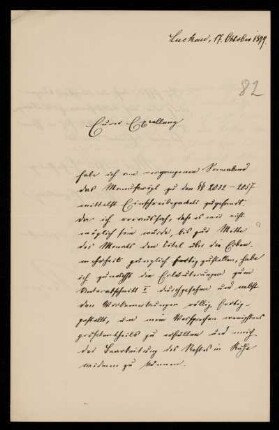 Luckau, 17. Oktober 1899.
82
Eurer Excellenz
habe ich am vergangenen Sonnabend
das Manuscript zu den §§ 2032 - 2057
mittelst Einschreibpackets gesandt.
Da ich voraussah, daß es mir nicht
möglich sein würde, bis zur Mitte
des Monats den Titel über die Erben-
mehrheit gänzlich fertig zu stellen, habe
ich zunächst die Erläuterungen zum
Unterabschnitt I. durchgesehen und nebst
den Vorbemerkungen völlig fertig-
gestellt, um mein Versprechen wenigstens
größtentheils zu erfüllen und mich
der Bearbeitung des Restes in Ruhe
widmen zu können.